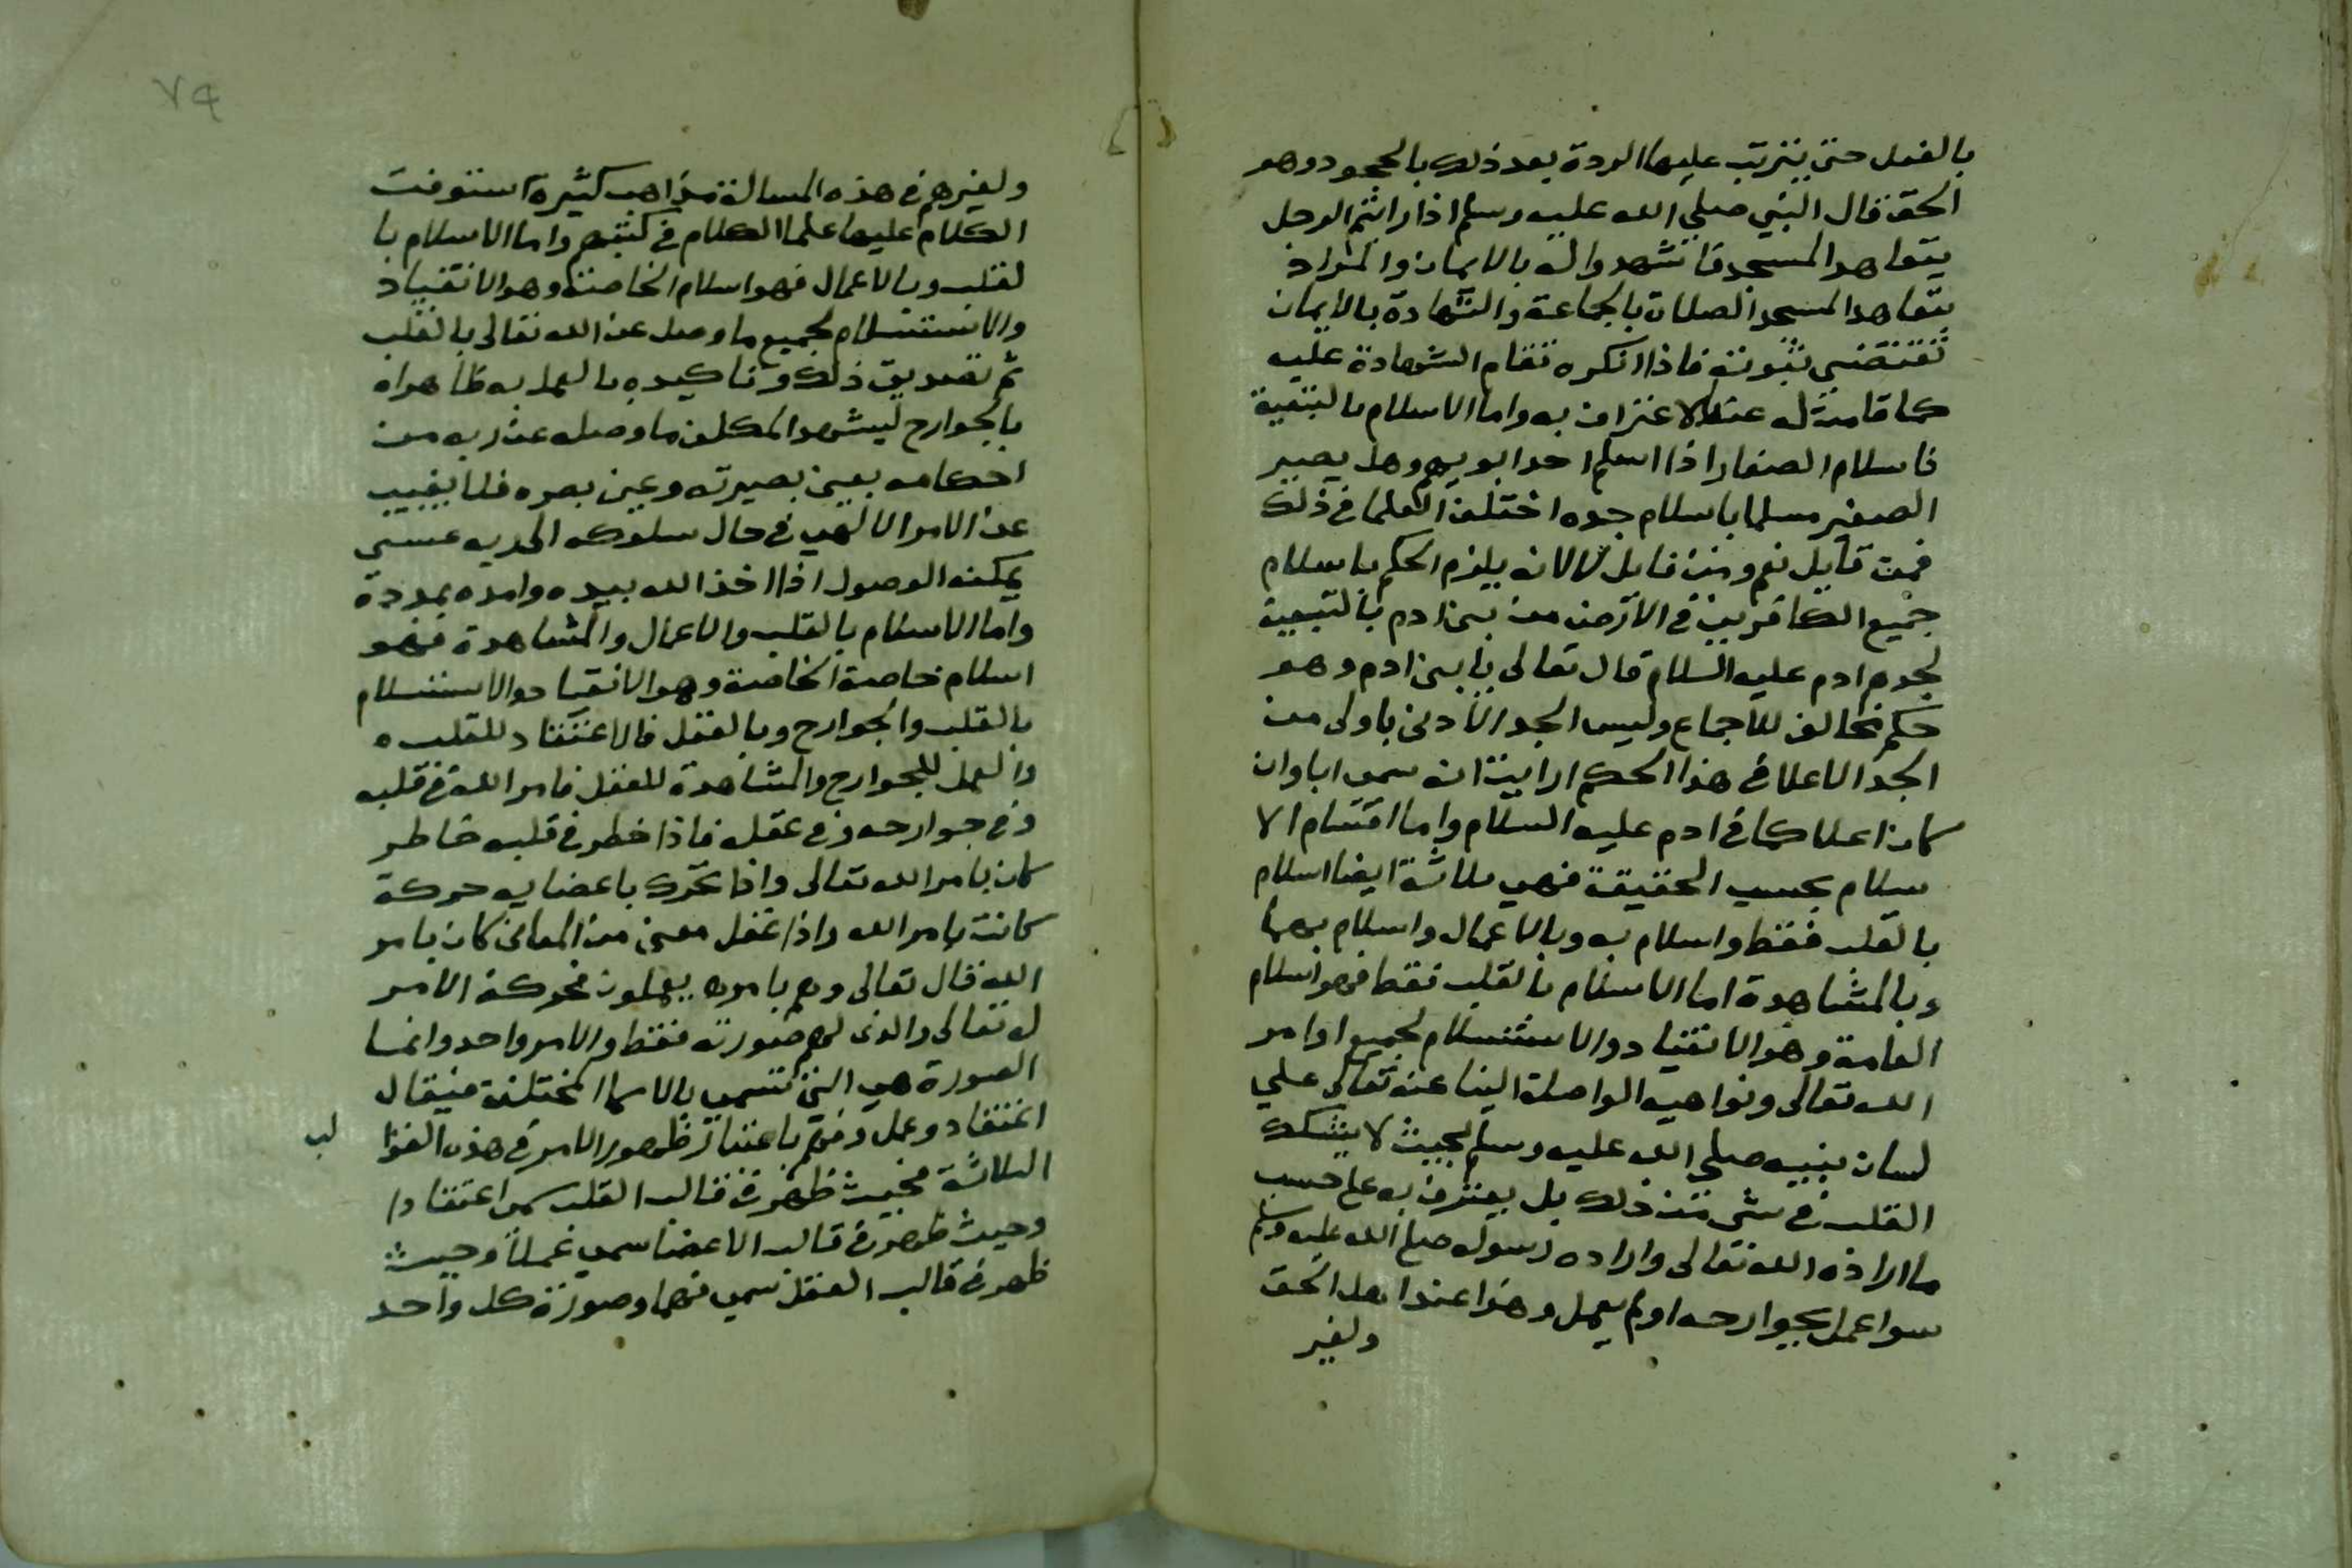 بالفعل حتى يترتب عليها الردة بعد ذلك بالجحود وهو
الحق قال النبي صلى الله عليه وسلم اذا رايتم الرجل
يتعاهد المسجد فاشهدوا له بالايمان والمراد
بتعاهد المسجد الصلاة بالجماعة والشهادة بالايمان
تقتضي ثبوته فاذا انكره تقام الشهادة عليه
كما قامت له عند الاعتراف به واما الاسلام بالتبعية
فاسلام الصغار اذا اسلم احد ابويهم وهل يصير
الصغير مسلما باسلام جده اختلف العلما في ذلك
فمن قايل نعم ومن قايل لا لانه يلزم الحكم باسلام
جميع الكافرين في الارض من بني ادم بالتبعية
لجدهم ادم عليه السلام قال تعالى يا بني ادم وهو
حكم مخالف للاجماع وليس الجد الادنى باولى من
الجد الاعلا في هذا الحكم ارايت انه سمى ابا وان
كان اعلا كما في ادم عليه السلام واما اقسام الا
سلام بحسب الحقيقة فهي ثلاثة ايضا اسلام
بالقلب فقط واسلام به وبالاعمال واسلام بهما
وبالمشاهدة اما الاسلام بالقلب فقط فهو اسلام
العامة وهو الانقياد والاستسلام لجميع اوامر
الله تعالى ونواهيه الواصلة الينا عنه تعالى علي
لسان نبيه صلى الله عليه وسلم بحيث لا يشك
القلب في شي من ذلك بل يعترف به على حسب
ما اراده الله تعالى واراده رسوله صلى الله عليه وسلم
سوا عمل بجوارحه او لم يعمل وهذا عند اهل الحق
ولغير
٧٩
ولغيرهم في هذه المسالة مذاهب كثيرة استوفت
الكلام عليها علما الكلام في كتبهم واما الاسلام با
لقلب وبالاعمال فهو اسلام الخاصة وهو الانقياد
والاستسلام لجميع ما وصل عن الله تعالى بالقلب
ثم تصديق ذلك وتاكيده بالعمل به ظاهرا ه
بالجوارح ليشهد المكلف ما وصله عن ربه من
احكامه بعين بصيرته وعين بصره فلا يغيب
عن الامر الالهي في حال سلوكه الى ربه عسى
يمكنه الوصول اذا اخذ الله بيده وامده بمدده
واما الاسلام بالقلب والاعمال والمشاهدة فهو
اسلام خاصة الخاصة وهو الانقياد والاستسلام
بالقلب والجوارح وبالعقل فالاعتقاد للقلب ه
والعمل للجوارح والمشاهدة للعقل فامر الله في قلبه
وفي جوارحه وفي عقله فاذا خطر في قلبه خاطر
كان بامر الله تعالى واذا تحرك باعضايه حركة
كانت بامر الله واذا عقل معنى من المعاني كان بامر
الله قال تعالى وهم بامره يعملون فحركة الامر
له تعالى والذي لهم صورته فقط والامر واحد وانما
الصورة هي التي تتسمى بالاسما المختلفة فيقال
اعتقاد وعمل وفهم باعتبار ظهور الامر في هذه القوا
لب
الثلاثة فحيث ظهر في قالب القلب سمى اعتقادا
وحيث ظهر في قالب الاعضا سمي عملاً وحيث
ظهر في قالب العقل سمي فهما وصورة كل واحد